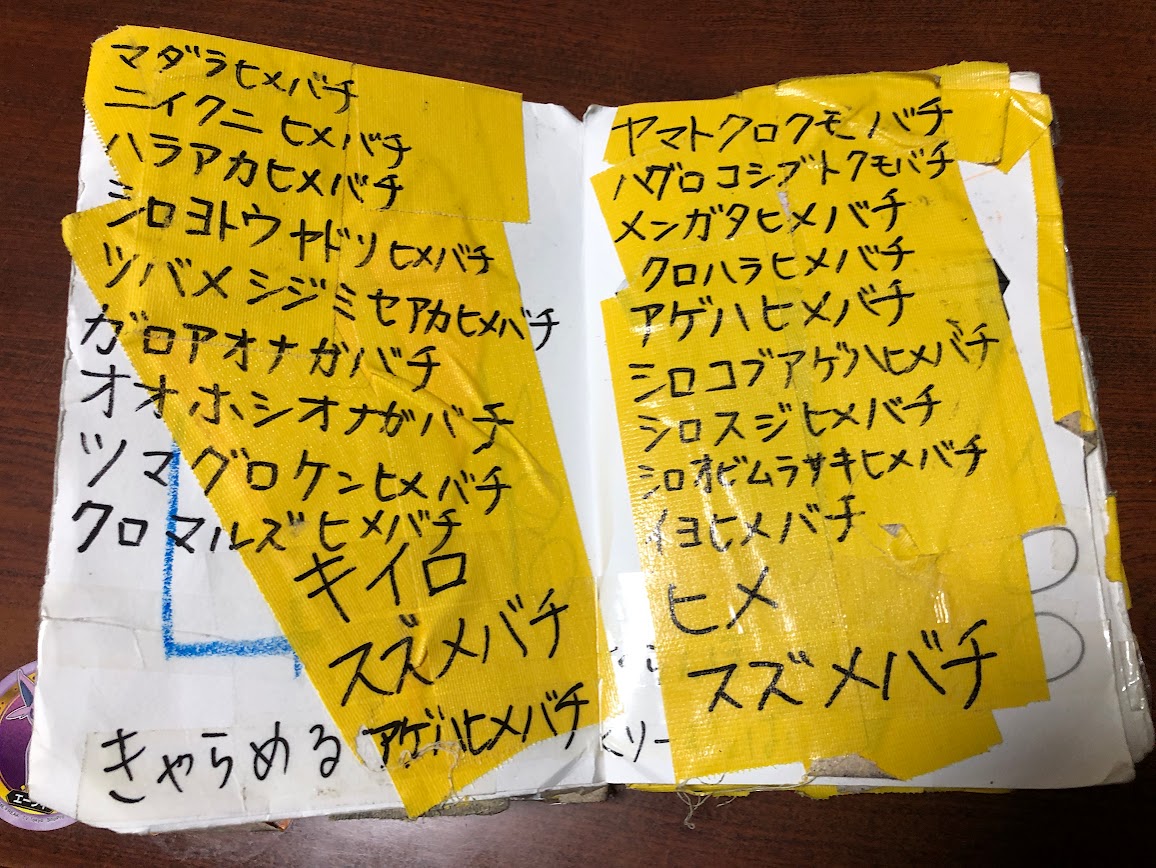 マダラヒメバチ
ニイクニヒメバチ
ハラアカヒメバチ
シロヨトウヤドリヒメバチ
ツバメシジミセアカヒメバチ
ガロアオナガバチ
オオホシオナガバチ
ツマグロケンヒメバチ
クロマルズヒメバチ
キイロ
スズメバチ
アゲハヒメバチ
きゃらめる
ヤマトクロクモバチ
ハグロコシブトクモバチ
メンガタヒメバチ
クロハラヒメバチ
アゲハヒメバチ
シロコブアゲハヒメバチ
シロスジヒメバチ
シロオビムラサキヒメバチ
イヨヒメバチ
ヒメ
スズメバチ